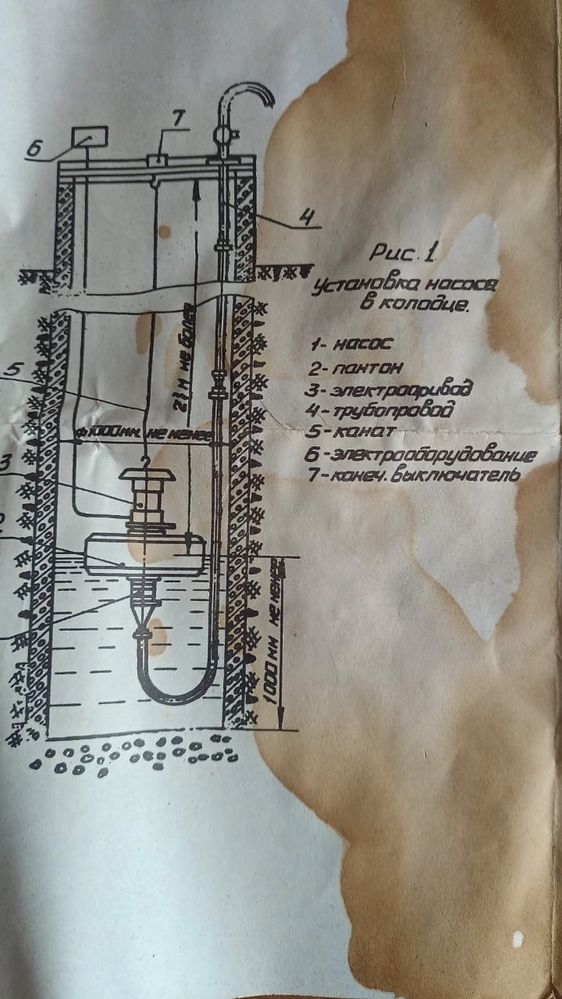 6
7
4
5
3
Рис. 1
установка насоса
в колодце.
1- насос
2- пантон
3- электропривод
4- трубопровод
5- канат
6- электрооборудование
7- конеч. выключатель
м не более
ф 1000 мм. не менее
1000 мм не менее